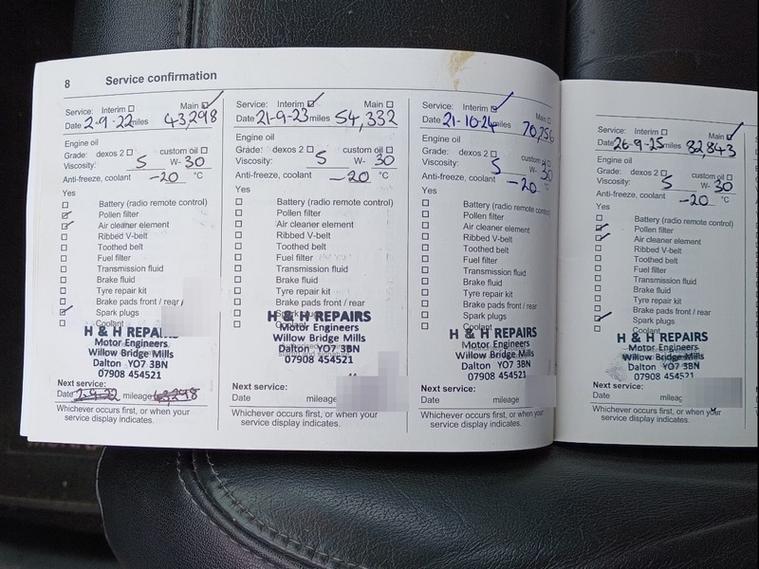 8 Service confirmation
Service: Interim Main
Date 2-9-22 miles 43,298
Engine oil
Grade: dexos 2 custom oil
Viscosity: 5 W- 30
Anti-freeze, coolant -20 °C
Yes
Battery (radio remote control)
Pollen filter
Air cleaner element
Ribbed V-belt
Toothed belt
Fuel filter
Transmission fluid
Brake fluid
Tyre repair kit
Brake pads front / rear
Spark plugs
Coolant
H & H REPAIRS
Motor Engineers
Willow Bridge Mills
Dalton YO7 3BN
07908 454521
Next service:
Date 2-9-22 mileage 43,298
Whichever occurs first, or when your
service display indicates.
Service: Interim Main
Date 21-9-23 miles 54,332
Engine oil
Grade: dexos 2 custom oil
Viscosity: 5 W- 30
Anti-freeze, coolant -20 °C
Yes
Battery (radio remote control)
Pollen filter
Air cleaner element
Ribbed V-belt
Toothed belt
Fuel filter
Transmission fluid
Brake fluid
Tyre repair kit
Brake pads front / rear
Spark plugs
Coolant
H & H REPAIRS
Motor Engineers
Willow Bridge Mills
Dalton YO7 3BN
07908 454521
Next service:
Date mileage
Whichever occurs first, or when your
service display indicates.
Service: Interim Main
Date 21-10-24 miles
Engine oil
Grade: dexos 2 custom oil
Viscosity: 5 W- 30
Anti-freeze, coolant -20 °C
Yes
Battery (radio remote control)
Pollen filter
Air cleaner element
Ribbed V-belt
Toothed belt
Fuel filter
Transmission fluid
Brake fluid
Tyre repair kit
Brake pads front / rear
Spark plugs
Coolant
H & H REPAIRS
Motor Engineers
Willow Bridge Mills
Dalton YO7 3BN
07908 454521
Next service:
Date mileage
Whichever occurs first, or when your
service display indicates.
Service: Interim Main
Date 26-9-25 miles 82,843
Engine oil
Grade: dexos 2 custom oil
Viscosity: 5 W- 30
Anti-freeze, coolant -20 °C
Yes
Battery (radio remote control)
Pollen filter
Air cleaner element
Ribbed V-belt
Toothed belt
Fuel filter
Transmission fluid
Brake fluid
Tyre repair kit
Brake pads front / rear
Spark plugs
Coolant
H & H REPAIRS
Motor Engineers
Willow Bridge Mills
Dalton YO7 3BN
07908 454521
Next service:
Date mileag
Whichever occurs first, or when your
service display indicates.